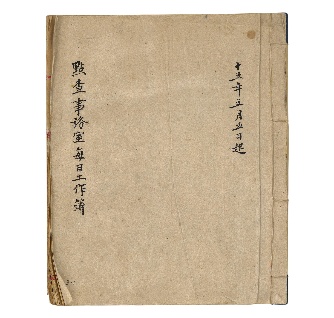 十五年五月五日起
點查事務室每日工作簿